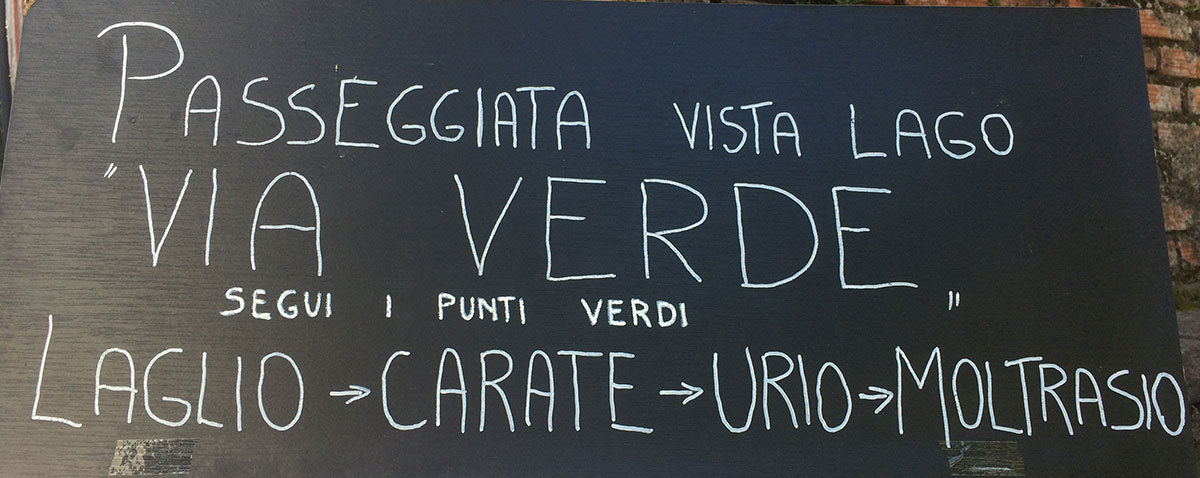 PASSEGGIATA VISTA LAGO
"VIA VERDE"
SEGUI I PUNTI VERDI
LAGLIO → CARATE → URIO → MOLTRASIO